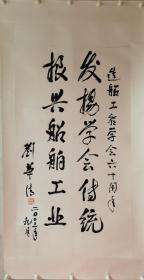 造船工程学会六十周年
发扬学会传统
振兴船舶工业
刘华清
二〇〇三年
九月